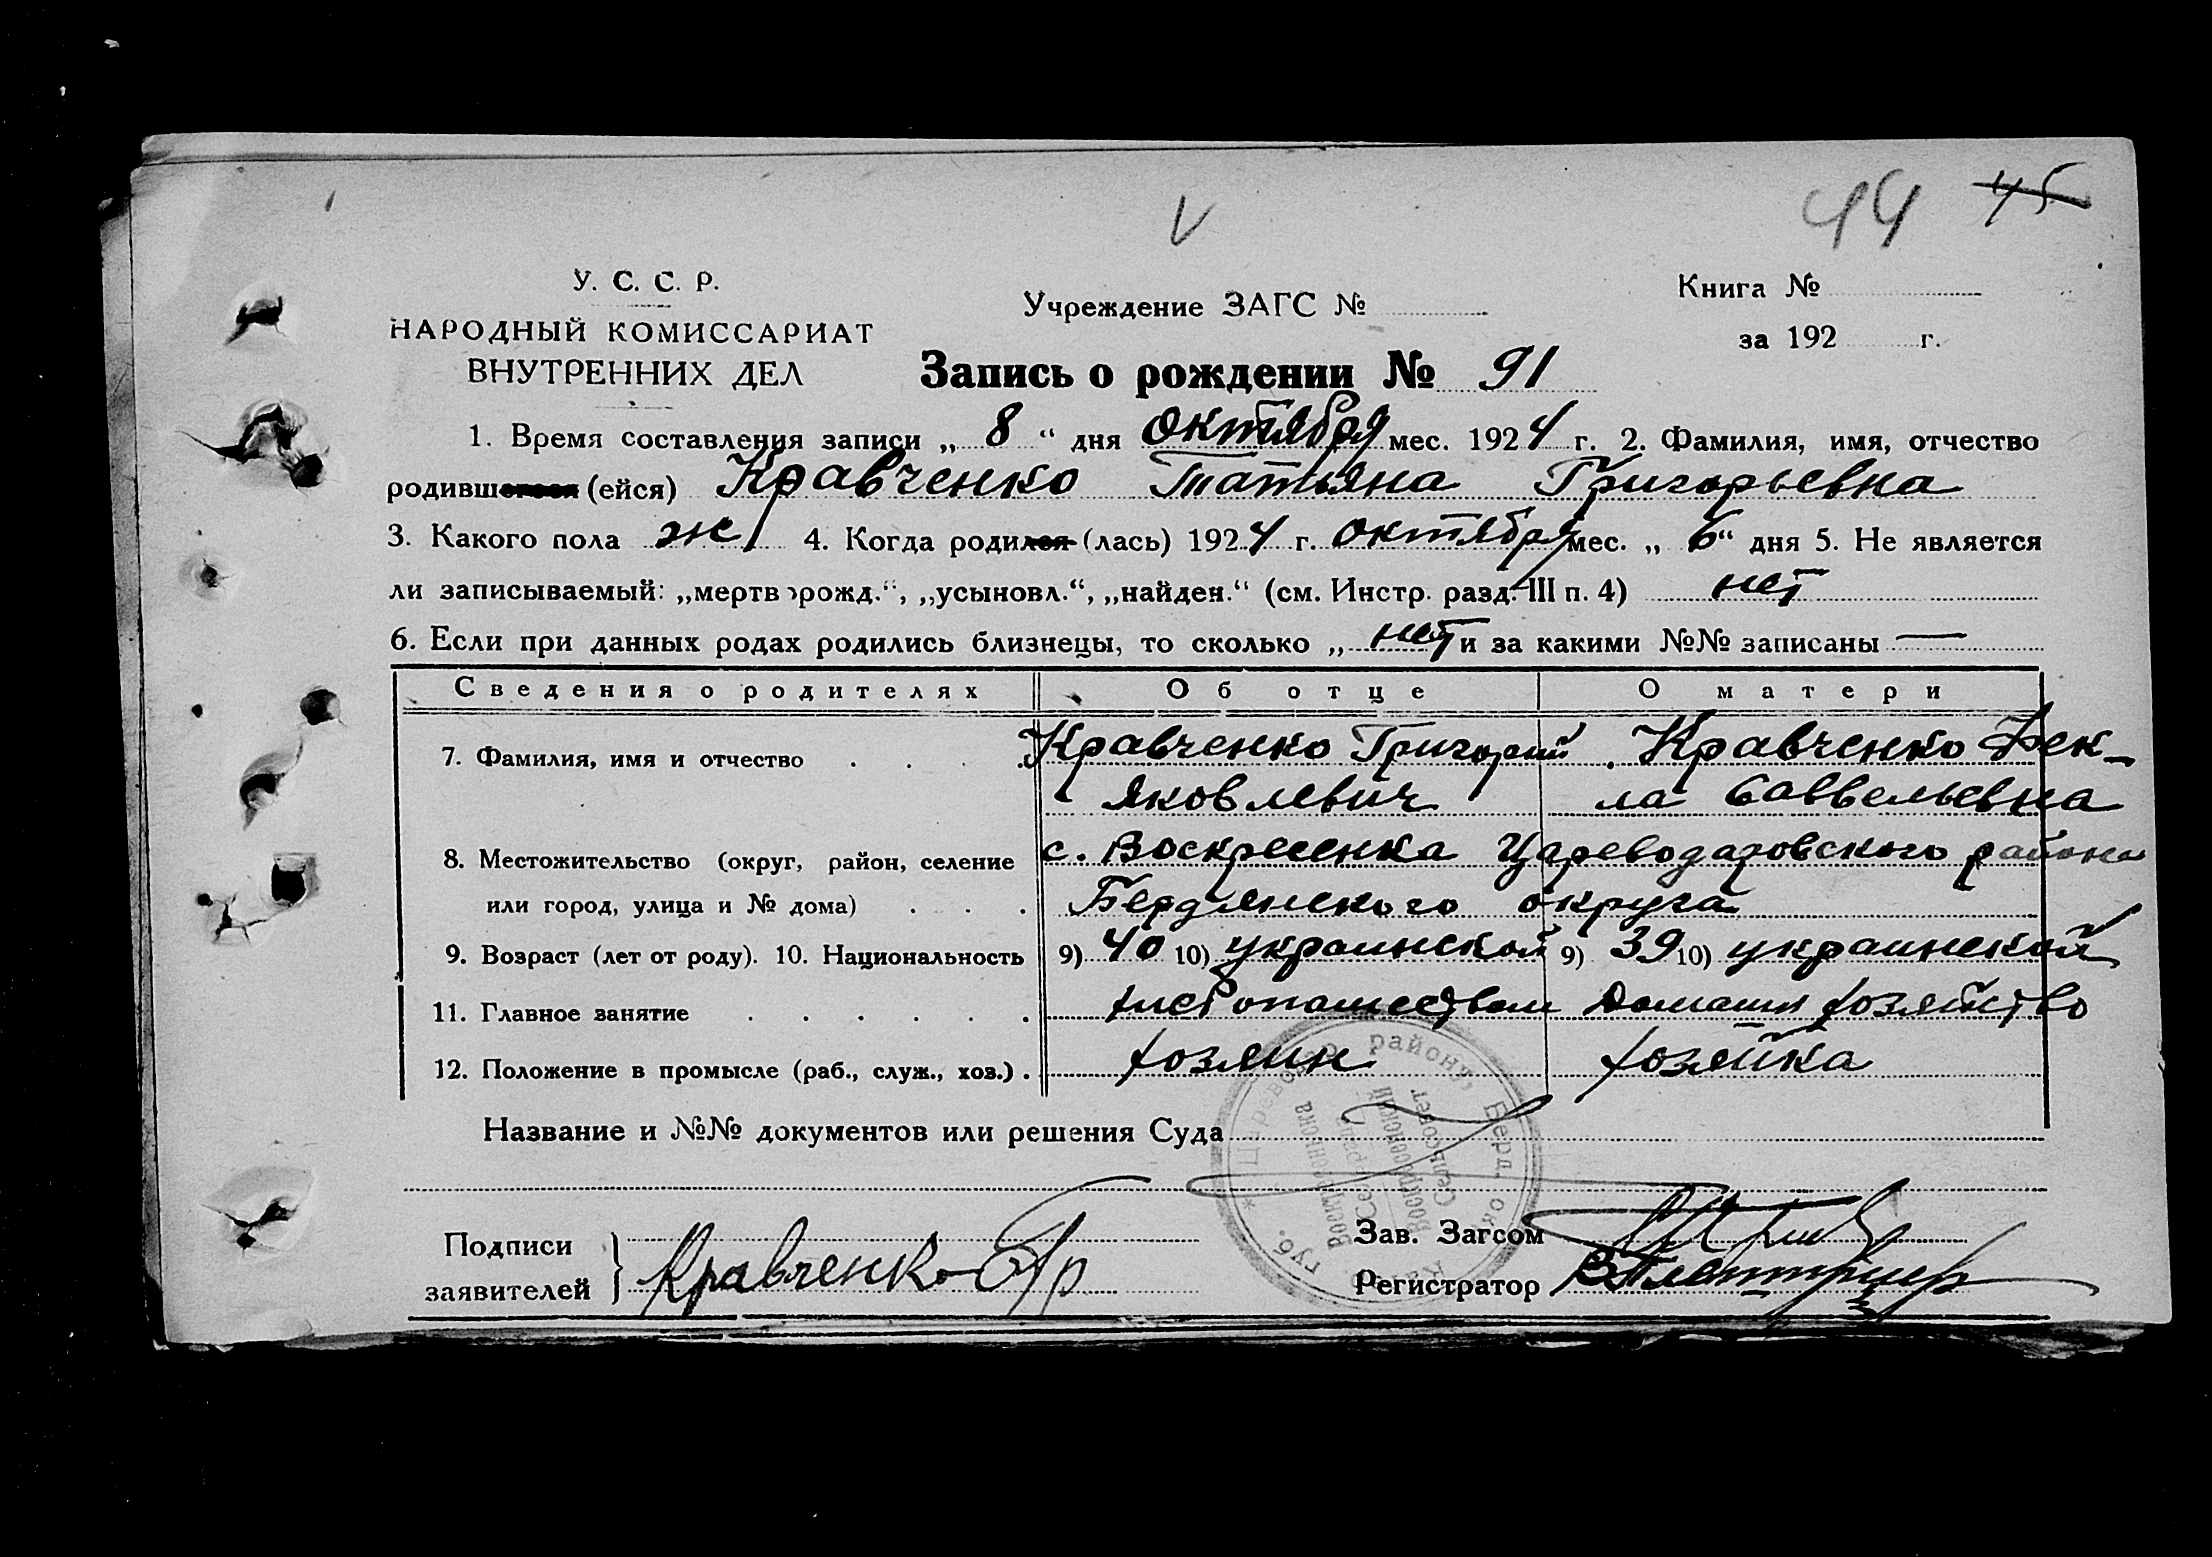 44 45
У. С. С. Р.
НАРОДНЫЙ КОМИССАРИАТ
ВНУТРЕННИХ ДЕЛ
Учреждение ЗАГС №
Книга №
за 192 г.
Запись о рождении № 91
1. Время составления записи „ 8 “ дня октября мес. 1924 г. 2. Фамилия, имя, отчество
родившегося (ейся) Кравченко Татьяна Григорьевна
3. Какого пола ж 4. Когда родился (лась) 1924 г. октября мес. „ 6 “ дня 5. Не является
ли записываемый: „мертворожд.“, „усыновл.“, „найден.“ (см. Инстр. разд. III п. 4) нет
6. Если при данных родах родились близнецы, то сколько „ нет и за какими №№ записаны —
Сведения о родителях Об отце О матери
7. Фамилия, имя и отчество . . . . Кравченко Григорий Кравченко Фек-
Яковлевич ла Саввельевна
8. Местожительство (округ, район, селение с. Воскресенка Цареводаровского района
или город, улица и № дома) . . . Бердянского округа
9. Возраст (лет от роду). 10. Национальность 9) 40 10) украинской 9) 39 10) украинской
11. Главное занятие . . . . . . хлебопашеством Домашн хозяйство
12. Положение в промысле (раб., служ., хоз.) . хозяин хозяйка
Название и №№ документов или решения Суда
району, Берд. ок
Воскресенский
Сельсовет
губ.
Подписи
заявителей } Кравченко Гр
Зав. Загсом
Регистратор